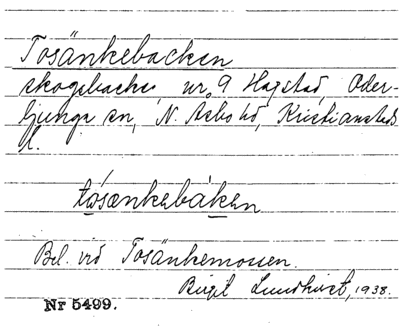 Tosänkebacken
skogsbacke nr 9 Hagstad, Oder-
ljunga sn, N. Åsbo hd, Kristianstads
l.
tósænkebàken
Bel. vid Tosänkemossen.
Birgit Lundkvist, 1938.
Nr 5499.